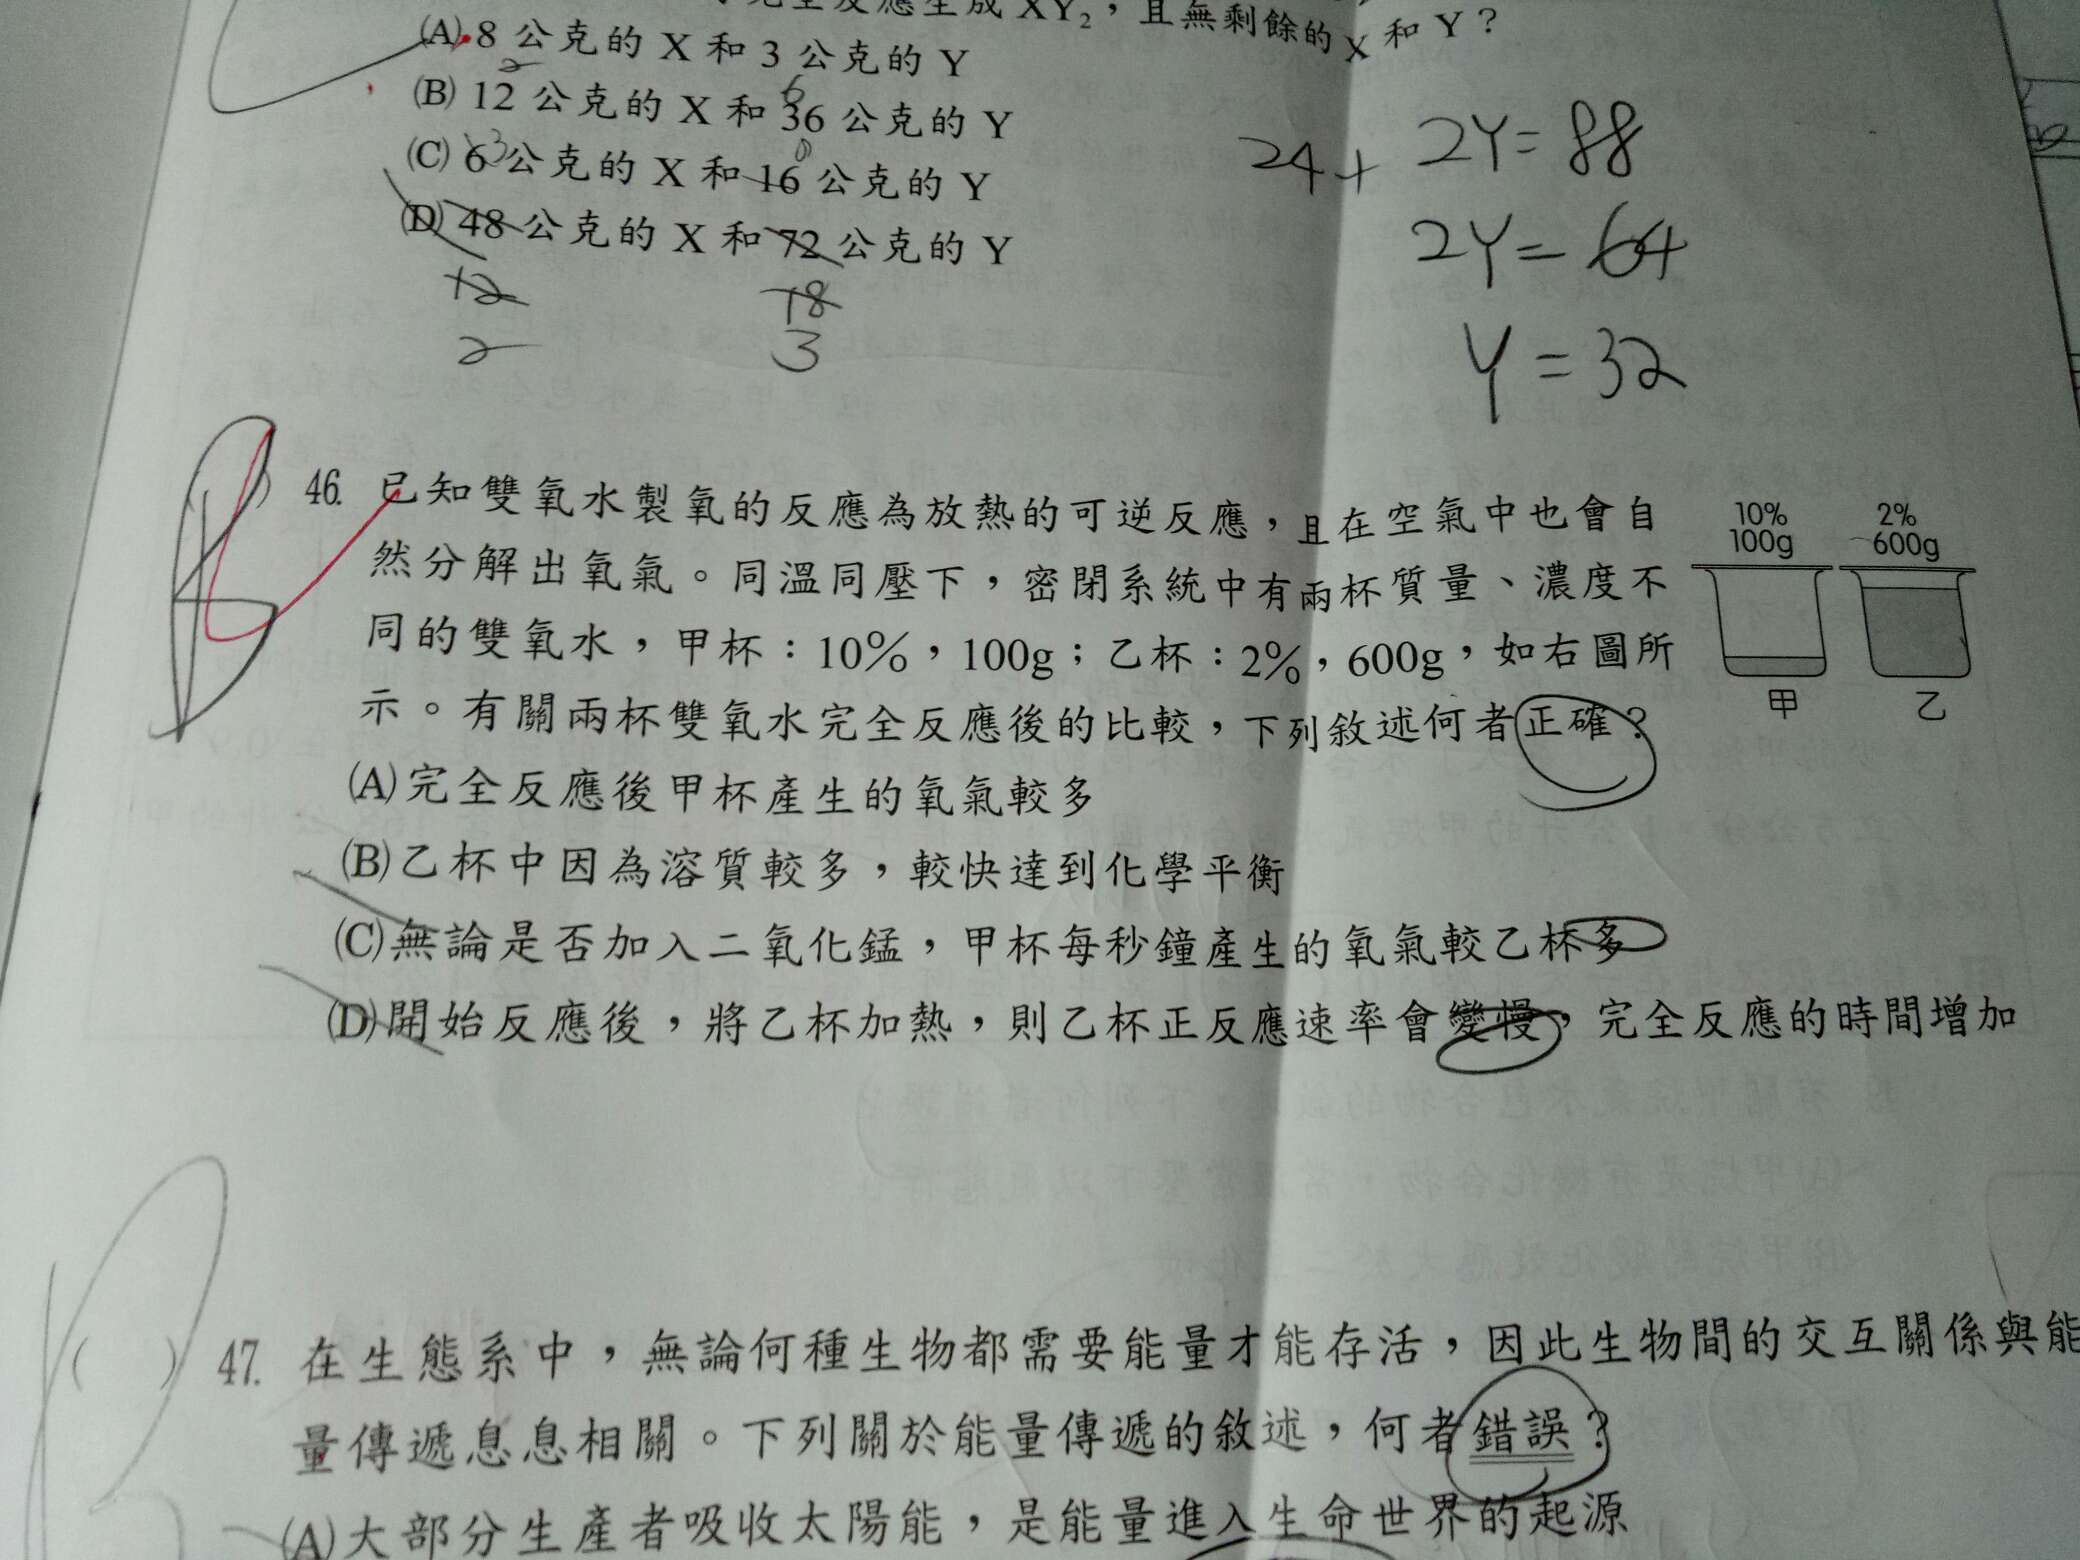 完全反應生成 XY₂，且無剩餘的 X 和 Y？
(A) 8 公克的 X 和 3 公克的 Y
2
(B) 12 公克的 X 和 36 公克的 Y
6
(C) 6 公克的 X 和 16 公克的 Y
3
(D) 48 公克的 X 和 72 公克的 Y
12 18
2 3
24+ 2Y=88
2Y=64
Y=32
46. 已知雙氧水製氧的反應為放熱的可逆反應，且在空氣中也會自
然分解出氧氣。同溫同壓下，密閉系統中有兩杯質量、濃度不
同的雙氧水，甲杯：10%，100g；乙杯：2%，600g，如右圖所
示。有關兩杯雙氧水完全反應後的比較，下列敘述何者正確？
10% 2%
100g 600g
甲 乙
(A)完全反應後甲杯產生的氧氣較多
(B)乙杯中因為溶質較多，較快達到化學平衡
(C)無論是否加入二氧化錳，甲杯每秒鐘產生的氧氣較乙杯多
(D)開始反應後，將乙杯加熱，則乙杯正反應速率會變慢，完全反應的時間增加
( ) 47. 在生態系中，無論何種生物都需要能量才能存活，因此生物間的交互關係與能
量傳遞息息相關。下列關於能量傳遞的敘述，何者錯誤？
(A)大部分生產者吸收太陽能，是能量進入生命世界的起源